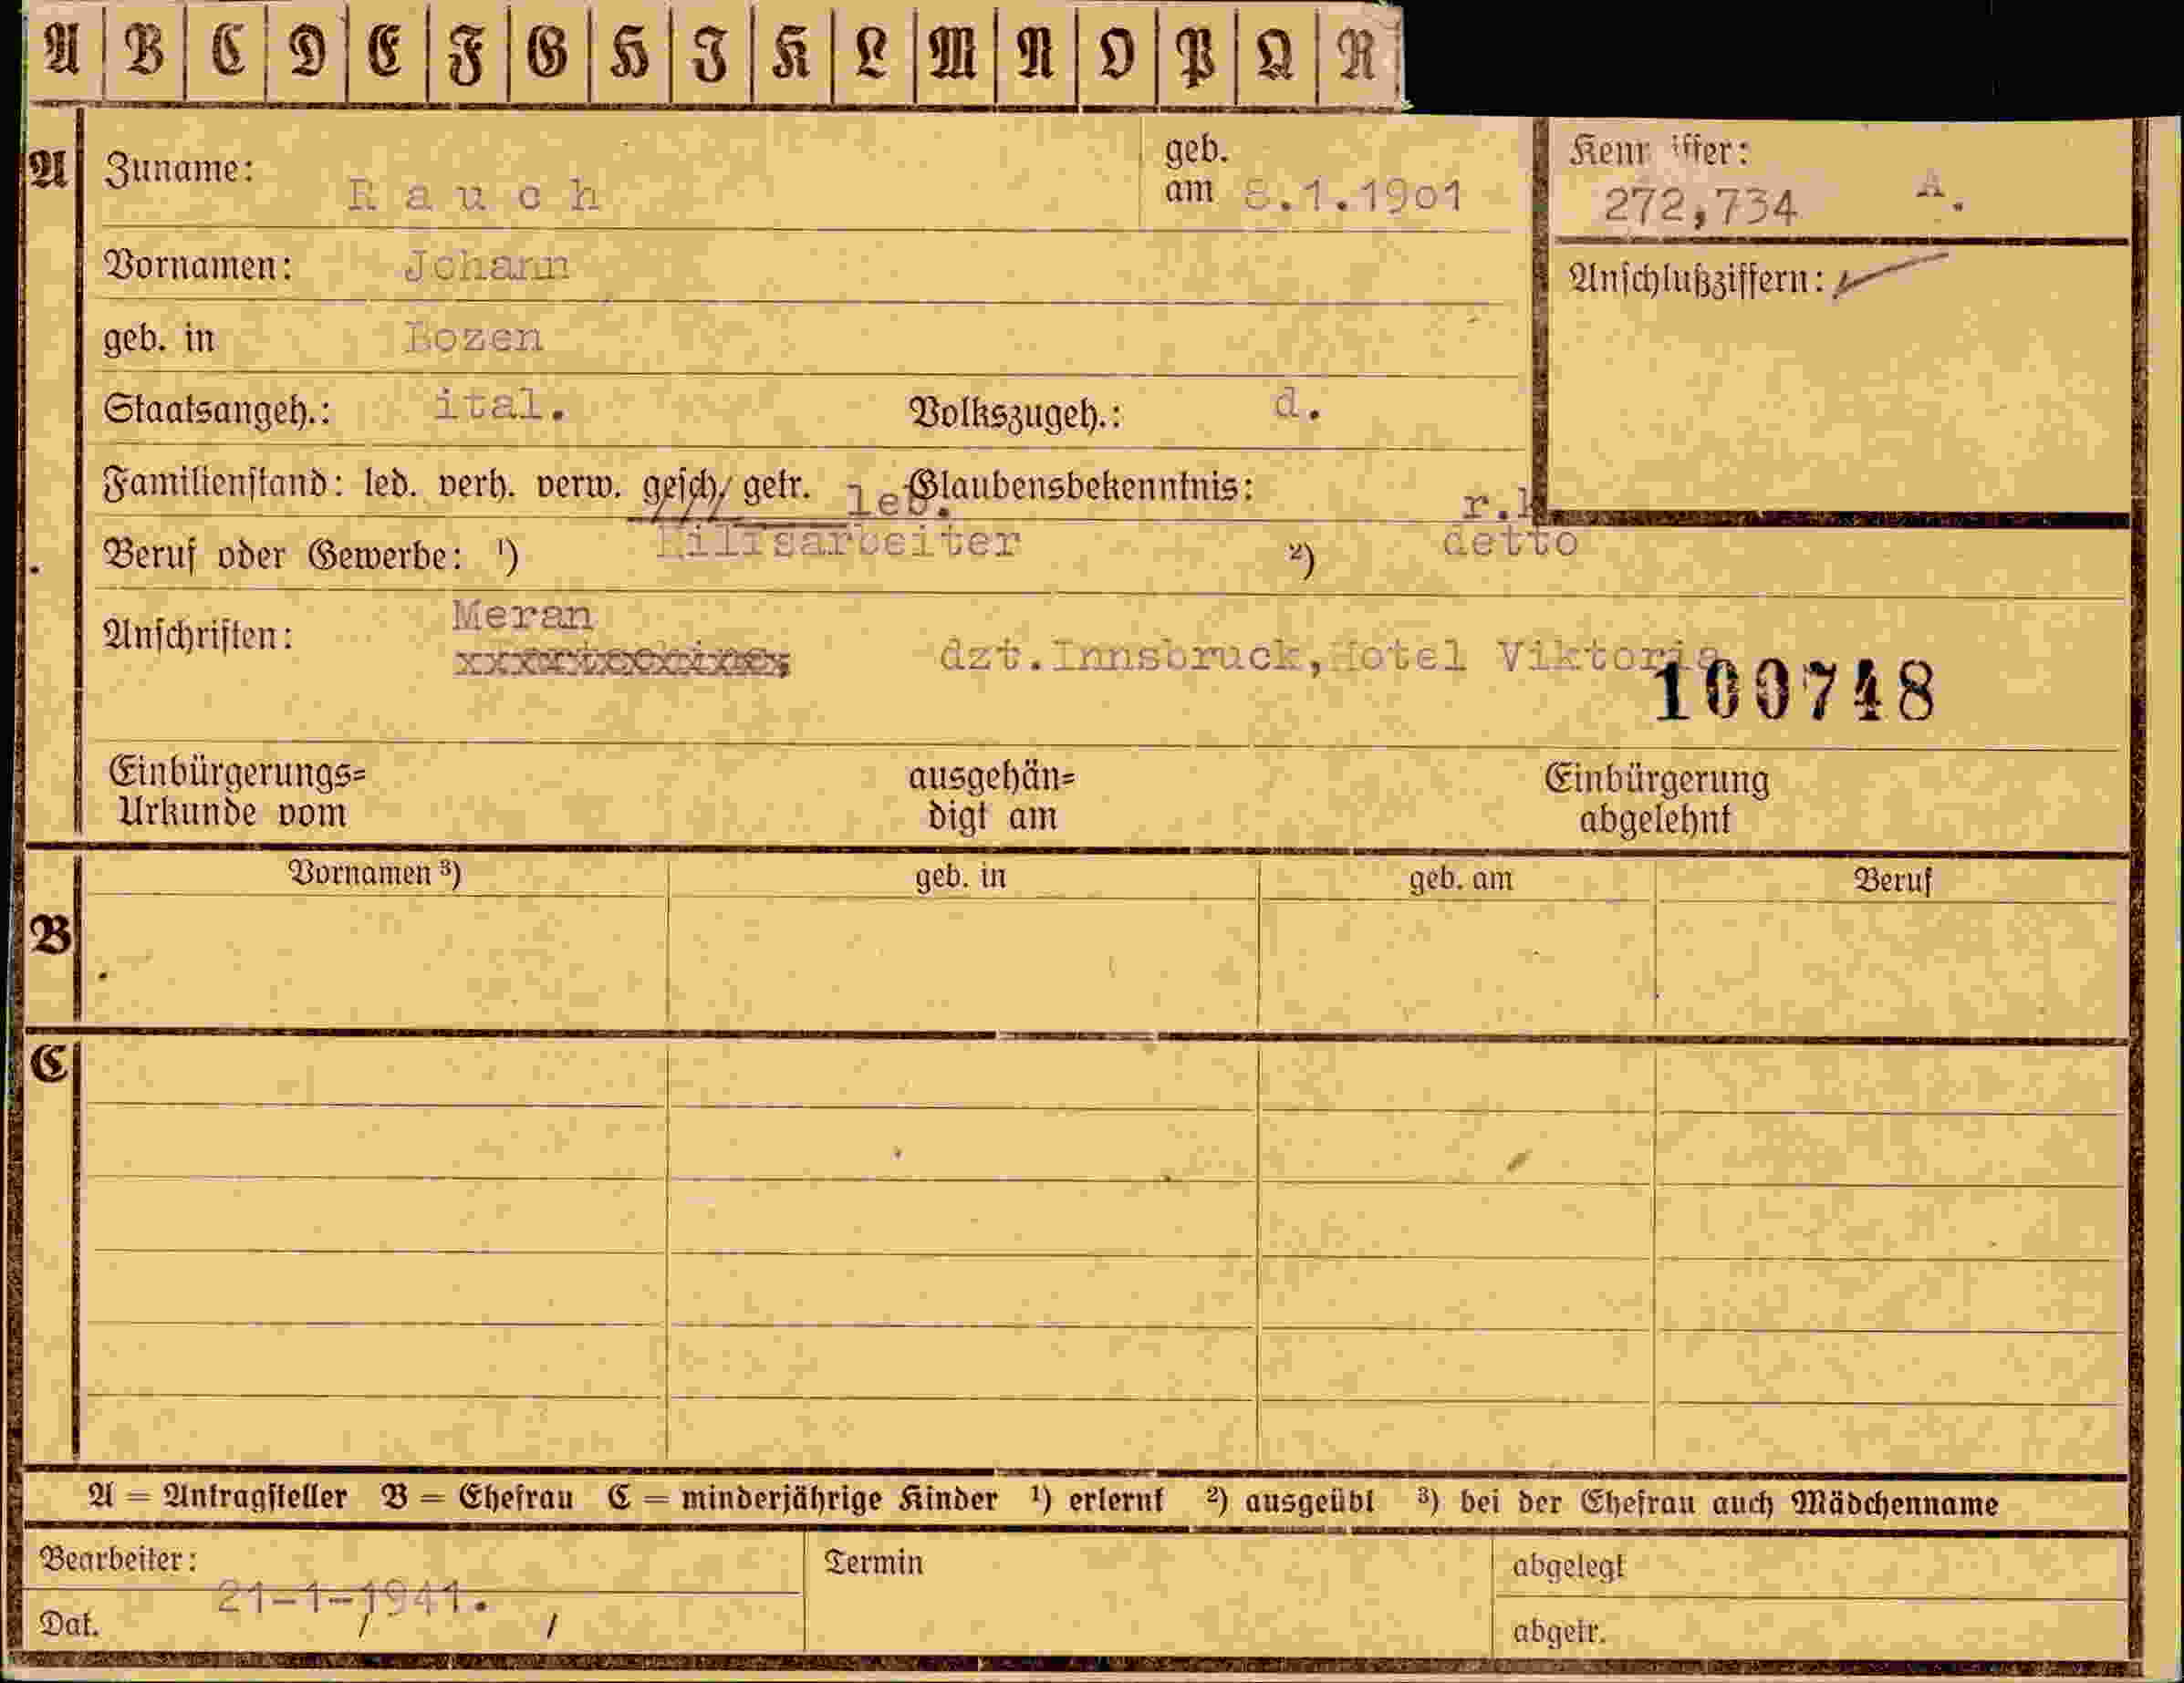 A B C D E F G H I K L M N O P Q R
A Zuname: Rauch geb. am 8.1.1901 A.
272,734
Vornamen: Johann Anschlußziffern:
geb. in Bozen
Staatsangeh.: ital. Volkszugeh.: d.
Familienstand: led. verh. verw. gesch. getr. led. Glaubensbekenntnis: r.k
Beruf oder Gewerbe: ¹) Hilfsarbeiter ²) detto
Anschriften: Meran
dzt.Innsbruck,Hotel Viktoria
100748
Einbürgerungs= ausgehän= Einbürgerung
Urkunde vom digt am abgelehnt
Vornamen ³) geb. in geb. am Beruf
B
C
A = Antragsteller B = Ehefrau C = minderjährige Kinder ¹) erlernt ²) ausgeübt ³) bei der Ehefrau auch Mädchenname
Bearbeiter: Termin abgelegt
21-1-1941.
Dat. abgetr.